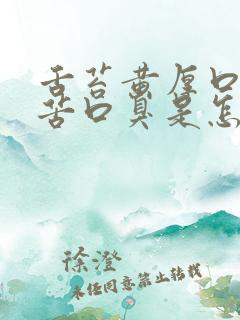 舌苔黄厚口
苦口臭是怎
徐澄
未经同意禁止转载